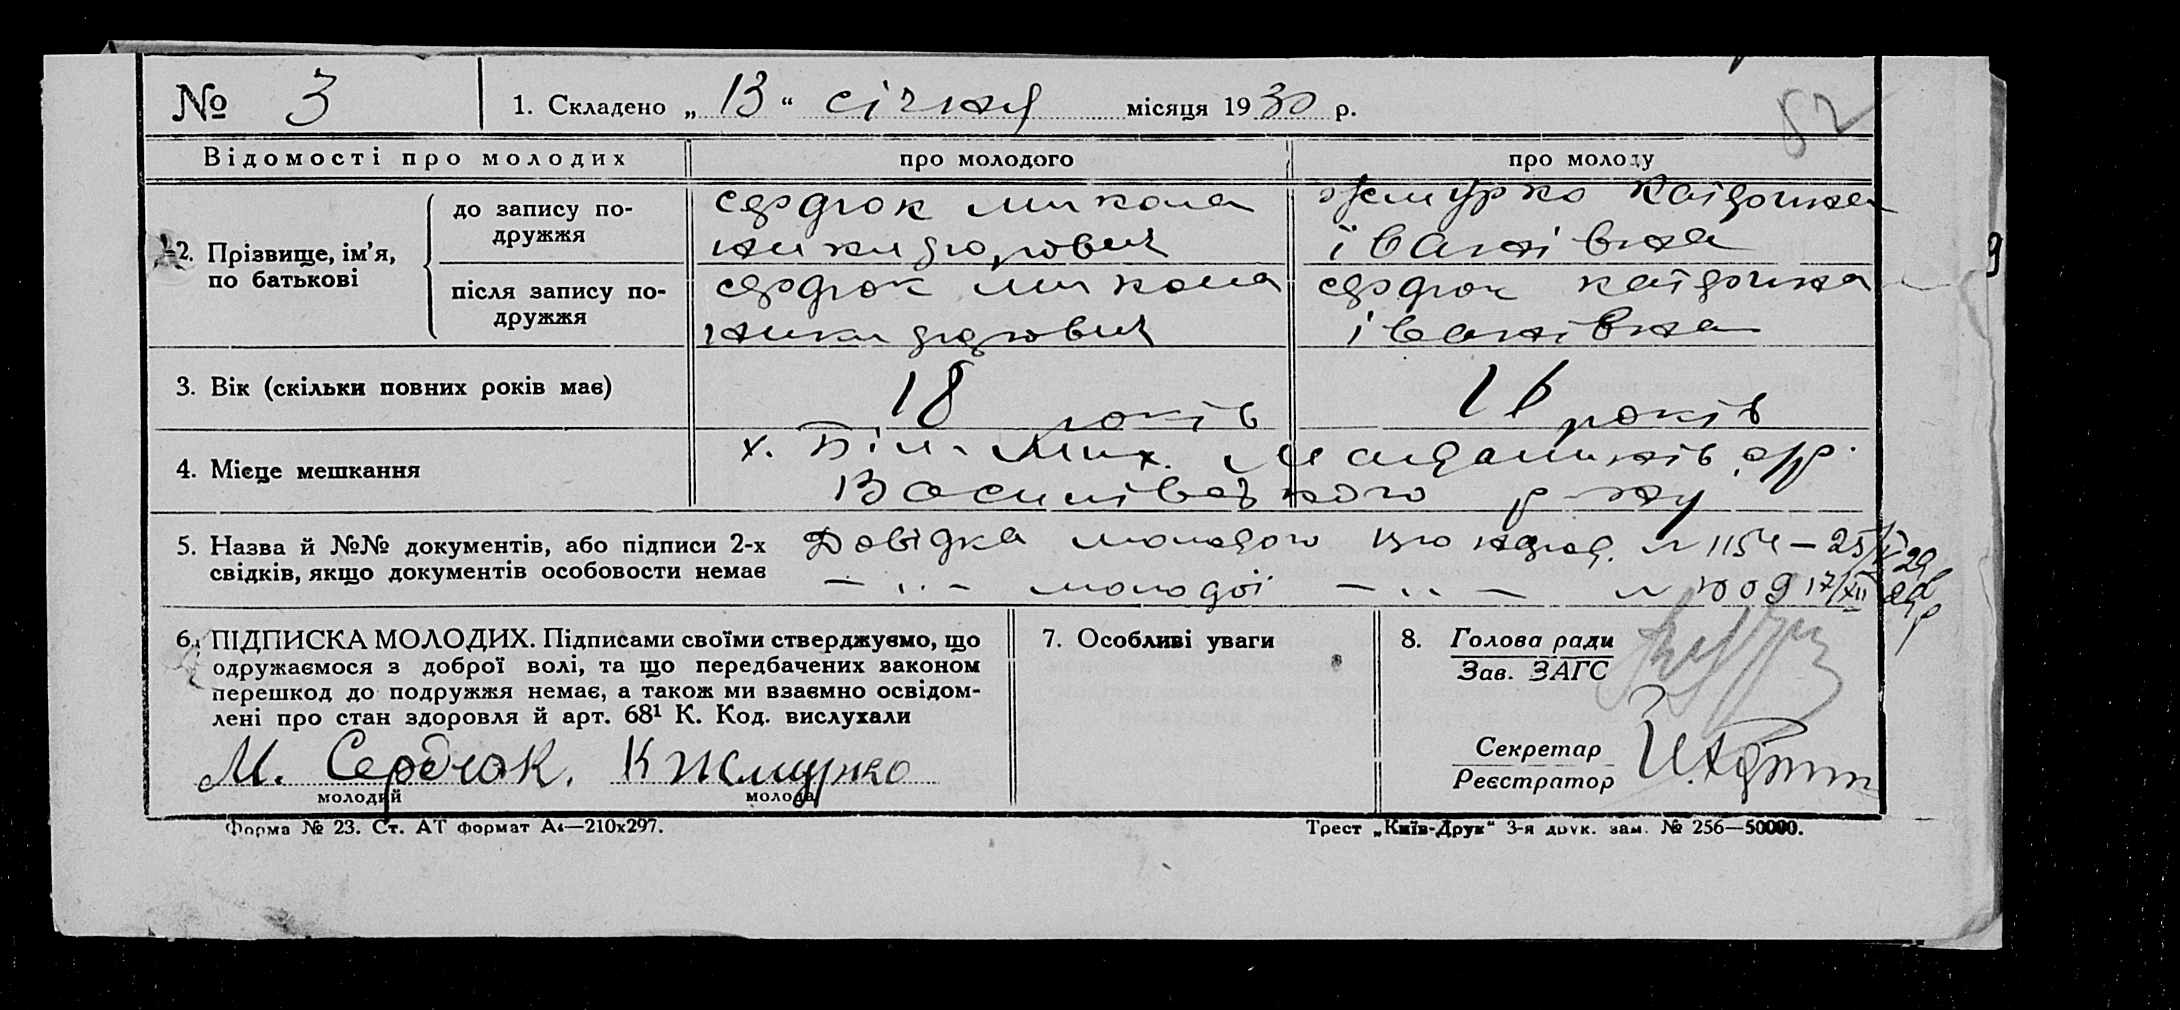 № 3 1. Складено „13“ січня місяця 1930 р.
82
Відомості про молодих про молодого про молоду
2. Прізвище, ім’я, по батькові
до запису подружжя
Сердюк Микола
Никифорович
Жмурко Катерина
Іванівна
9
після запису подружжя
Сердюк Микола
Никифорович
Сердюк Катерина
Іванівна
3. Вік (скільки повних років має) 18 років 16 років
4. Місце мешкання х. Біл. Мих.
Василівського р-ну
5. Назва й №№ документів, або підписи 2-х
свідків, якщо документів особовости немає
Довідка молодого про народ. № 1154 – 25/
– „ – молодої – „ – № 1009 17/XII 29 р
6. ПІДПИСКА МОЛОДИХ. Підписами своїми стверджуємо, що
одружаємося з доброї волі, та що передбачених законом
перешкод до подружжя немає, а також ми взаємно освідом-
лені про стан здоровля й арт. 68¹ К. Код. вислухали
М. Сердюк. К Жмурко
молодий молода
7. Особливі уваги
8. Голова ради
Зав. ЗАГС
Секретар
Реєстратор
Форма № 23. Ст. АТ формат А4—210х297. Трест „Київ-Друк“ 3-я друк. зам. № 256—50000.